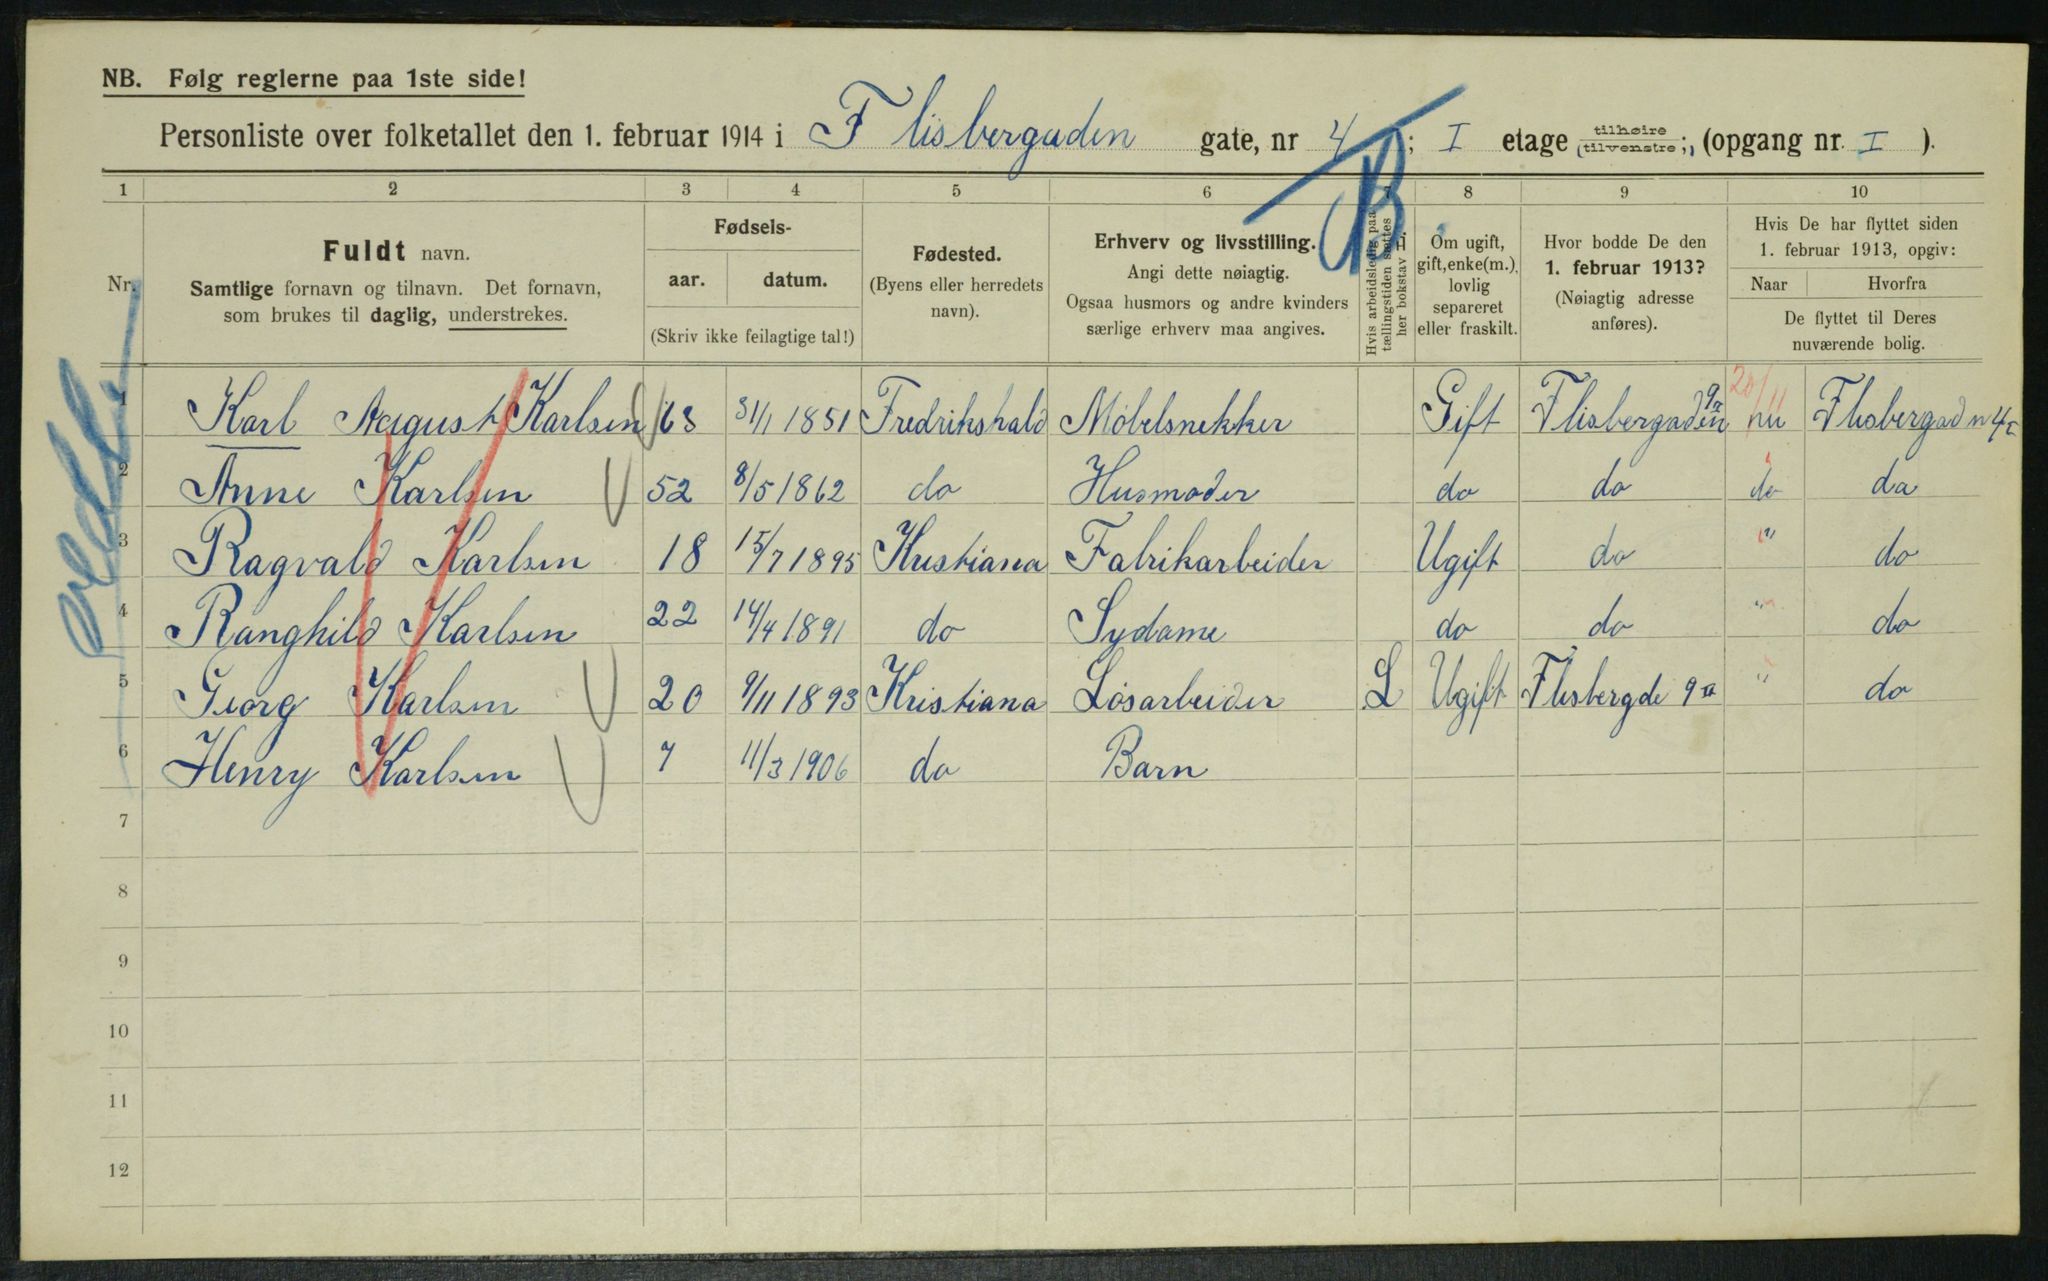 NB. Følg reglerne paa 1ste side!
Personliste over folketallet den 1. februar 1914 i Flisbergaden gate, nr 4 B; I etage (tilhøire tilvenstre;) (opgang nr. I ).
1 2 3 4 5 6 7 8 9 10
Nr.
Fuldt navn.
Samtlige fornavn og tilnavn. Det fornavn,
som brukes til daglig, understrekes.
Fødsels-
aar. datum.
(Skriv ikke feilagtige tal!)
Fødested.
(Byens eller herredets
navn).
Erhverv og livsstilling.
Angi dette nøiagtig.
Ogsaa husmors og andre kvinders
særlige erhverv maa angives.
Hvis arbeidsledig paa
tællingstiden sættes
her bokstav L.
Om ugift,
gift, enke(m.),
lovlig
separeret
eller fraskilt.
Hvor bodde De den
1. februar 1913?
(Nøiagtig adresse
anføres).
Hvis De har flyttet siden
1. februar 1913, opgiv:
Naar Hvorfra
De flyttet til Deres
nuværende bolig.
1 Karl August Karlsen 63 31/1 1851 Fredrikshald Møbelsnekker Gift Flisbergaden 9 II nu Flisbergadn 4 I
2 Anne Karlsen 52 8/5 1862 do Husmoder do do do do
3 Ragvald Karlsen 18 15/7 1895 Kristiana Fabrikarbeider Ugift do " do
4 Ranghild Karlsen 22 14/4 1891 do Sydame do do " do
5 Georg Karlsen 20 9/11 1893 Kristiana Løsarbeider L Ugift Flisbergde 9 II " do
6 Henry Karlsen 7 11/3 1906 do Barn
7
8
9
10
11
12